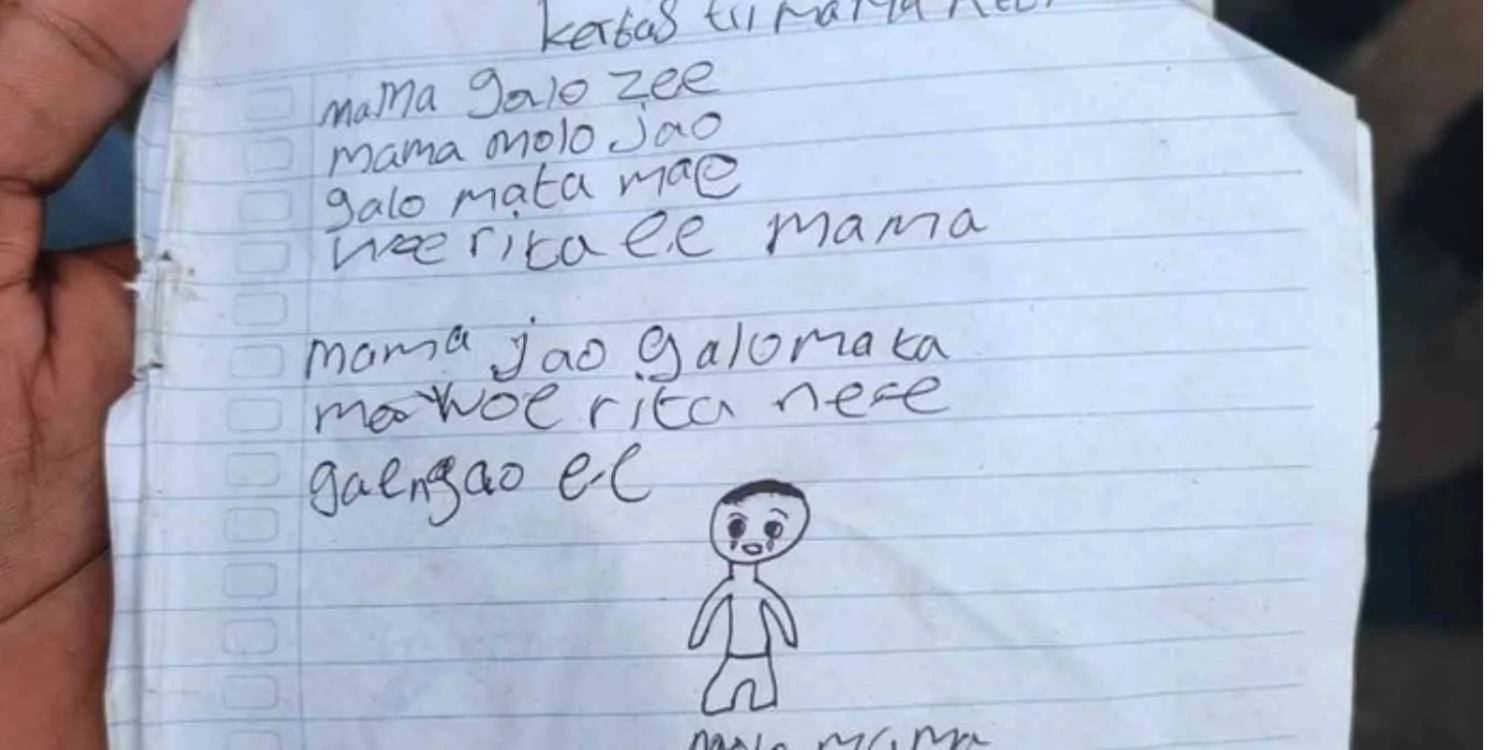 kertas tii mama
mama galo zee
mama molo jao
galo mata mae
woe rita ee mama
mama jao galo mata
mae woe rita ne ee
gaengao ee
molo mama